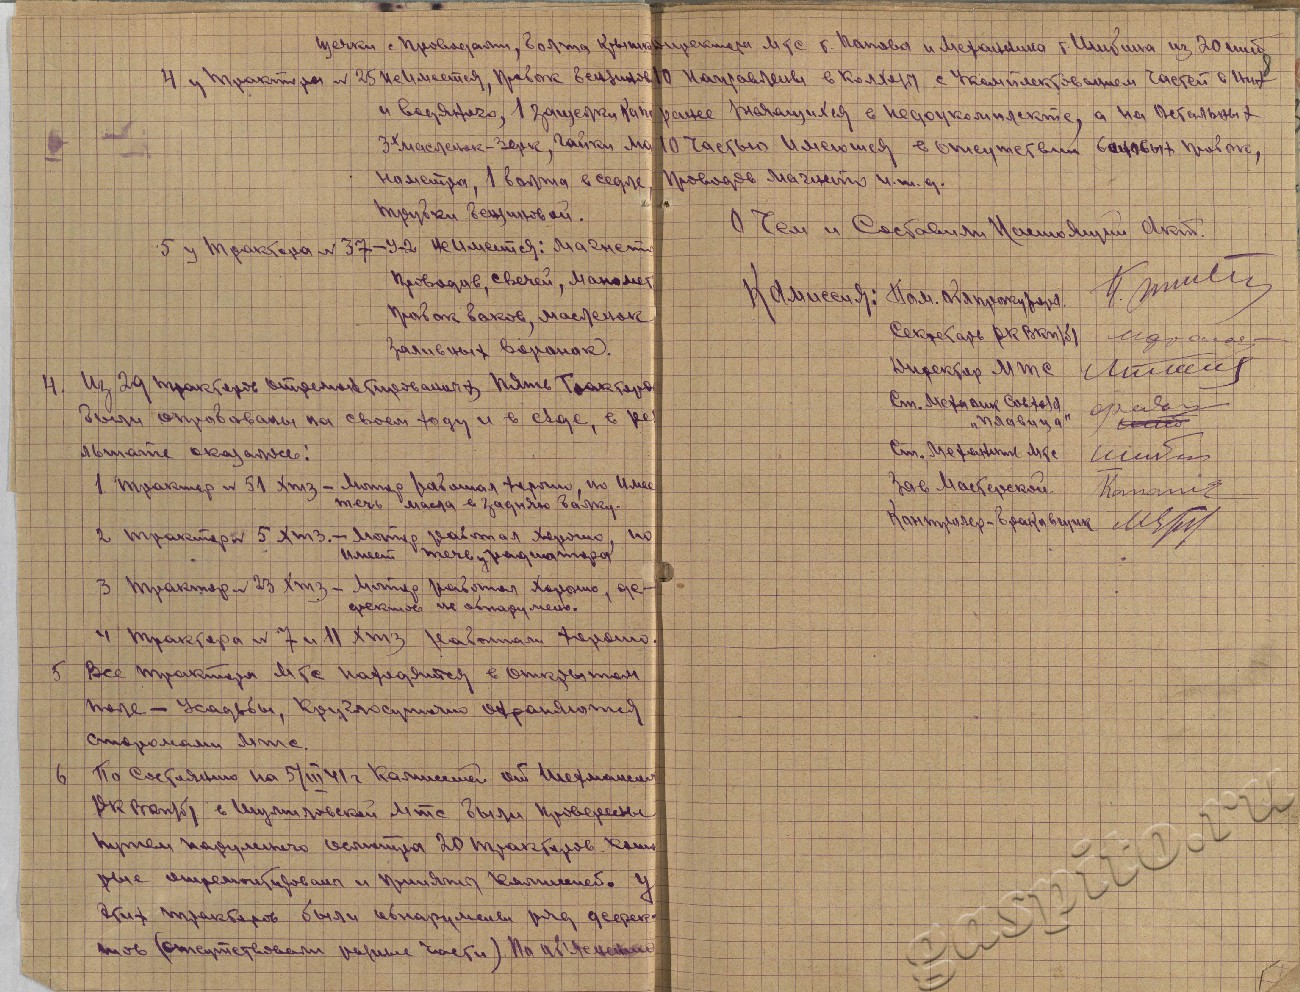 щечки с проводами, болта крышки
4 у трактора № 25 не имеется, пробок бензиновых
и водяного, 1 защелки капо
3х масленок-Зерк, гайки ма
нометра, 1 болта в седле,
трубки бензиновой.
5 у трактора № 37-У-2 не имеется: магнето
проводов, свечей, маномет
пробок баков, масленок
заливных воронок).
4. Из 29 тракторов отремонтированных пять тракторов
были опробованы на своем ходу и в езде, в ре
льтате оказалось:
1 Трактор № 51 ХТЗ – Мотор работал хорошо, но имее
течь масла в заднюю балку.
2 Трактор № 5 ХТЗ. – Мотор работал хорошо, но
имеет течь у радиатора
3 Трактор № 23 ХТЗ – Мотор работал хорошо, де-
фектов не обнаружено.
4 Трактора № 7 и 11 ХТЗ работали хорошо.
5 Все трактора МТС находятся в открытом
поле – усадьбы, круглосуточно охраняются
сторожами МТС.
6 По состоянию на 5/III 41 г комиссией от
РК ВКП/б/ в Шульговской МТС были проверены
путем наружного осмотра 20 тракторов. Кото
рые отремонтированы и приняты комиссией. У
этих тракторов были обнаружены ряд дефек-
тов (отсутствовали разные части) По об'яснению
директора МТС т. Попова и механика т. из 20 ниф
10 направлены в колхозы с укомплектованием частей в них
ранее значащихся в недоукомплекте, а на остальных
10 частью имеются в отсутствии баковых пробок,
проводов магнето и.т.д.
О чем и составили настоящий акт.
Комиссия: Пом. Райпрокурора
Секретарь РК ВКП/б/
Директор МТС
Ст. Механик Совхоза
„Плавица"
Ст. Механик МТС
Зав Мастерской
Контролер-Браковщик
gaspito.ru